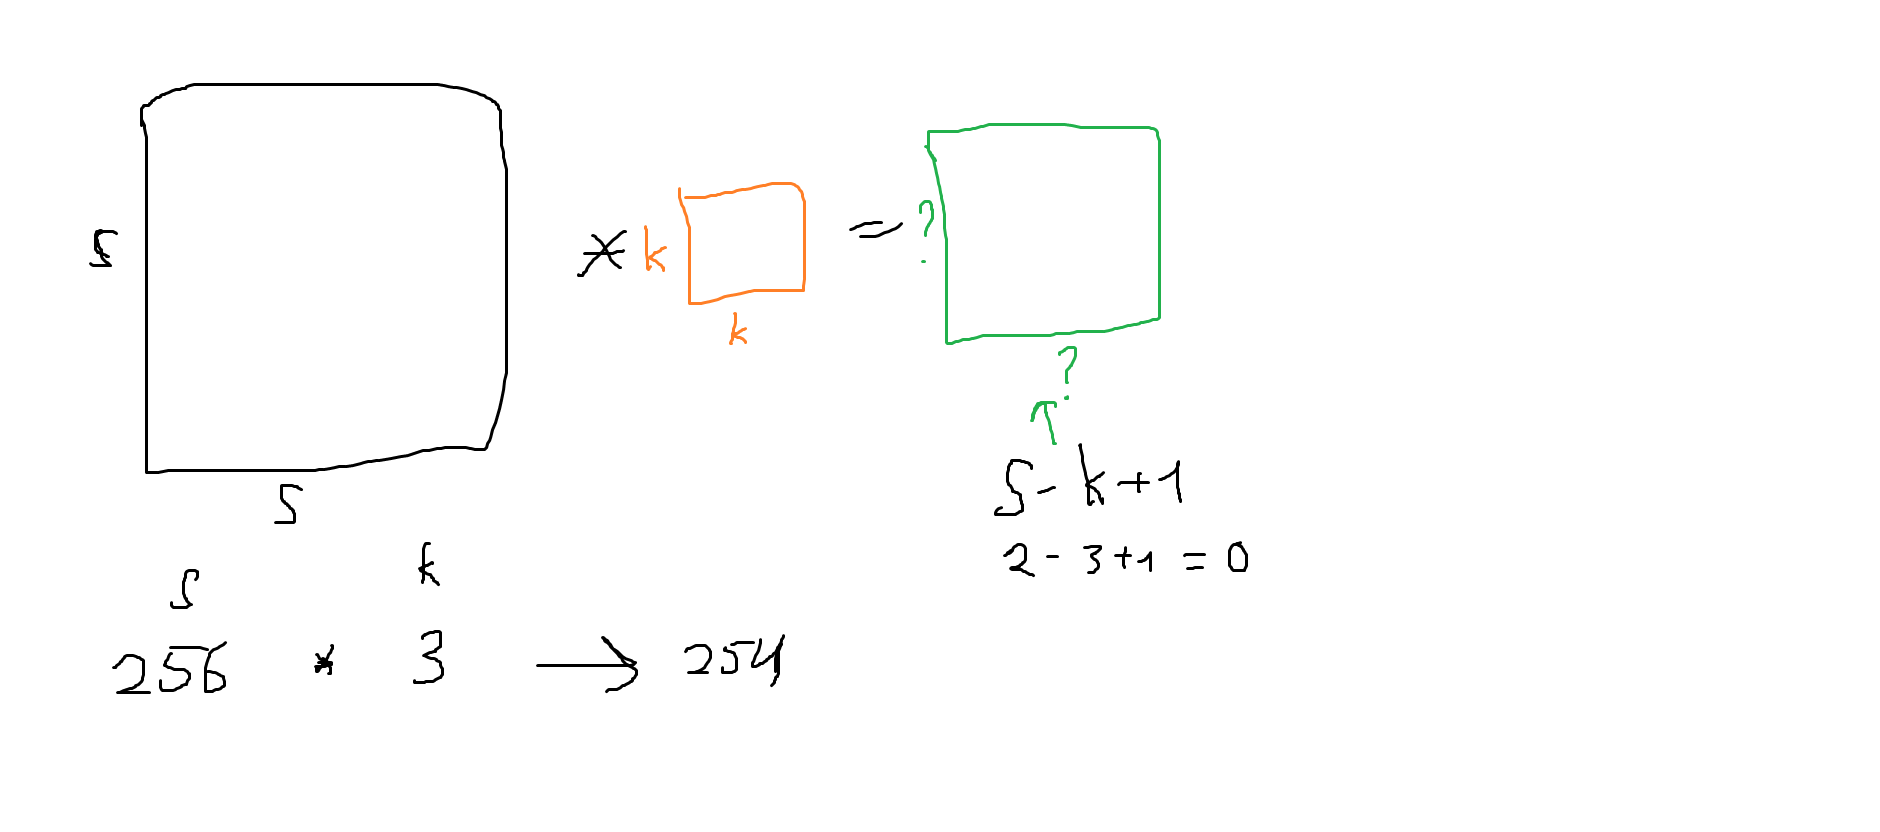 s * k = ?
k
?
s
s - k + 1
2 - 3 + 1 = 0
s k
256 * 3 → 254